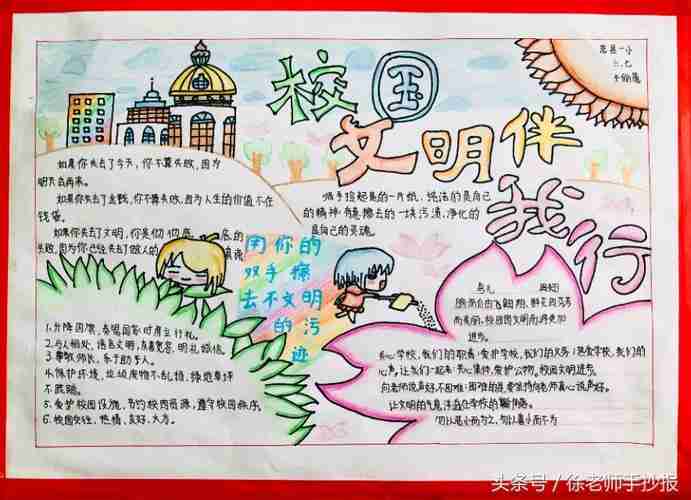 校园
文明伴
我行
三、七
如果你失去了今天，你不算失败，因为
明天会再来。
如果你失去了金钱，不算失败，因为人生的价值不在
钱袋。
如果你失去了文明，你是彻彻底底的
失败，因为你已经失去了做人的真谛
用你的
双手擦
去不文明
的污
迹
弯手捡起的一片纸，纯洁的是自己
的精神，有意擦去的一块污渍，净化的
是自己的灵魂。
1.升降国旗，奏唱国歌时肃立行礼。
2.与人相处，语言文明，有善宽容，明礼诚信。
3.尊敬师长，乐于助多人。
4.保护环境，垃圾废物不乱扔，绿造草坪
不践踏。
5.爱护校园设施，节约校内资源，遵守校园秩序。
6.校园交往，热情、友好、大方。
鸟儿 因翱翔
进步。
关心学校，我们的职责，爱护学校，我们的义务，热爱学校，我们的
心声，让我们一起来，关心集体，爱护公物，校园文明进步。
向老师说声好，不困难，困难的是
让文明的气息洋溢在学校的
勿以恶小而为之，勿以善小而不为
头条号／徐老师手抄报